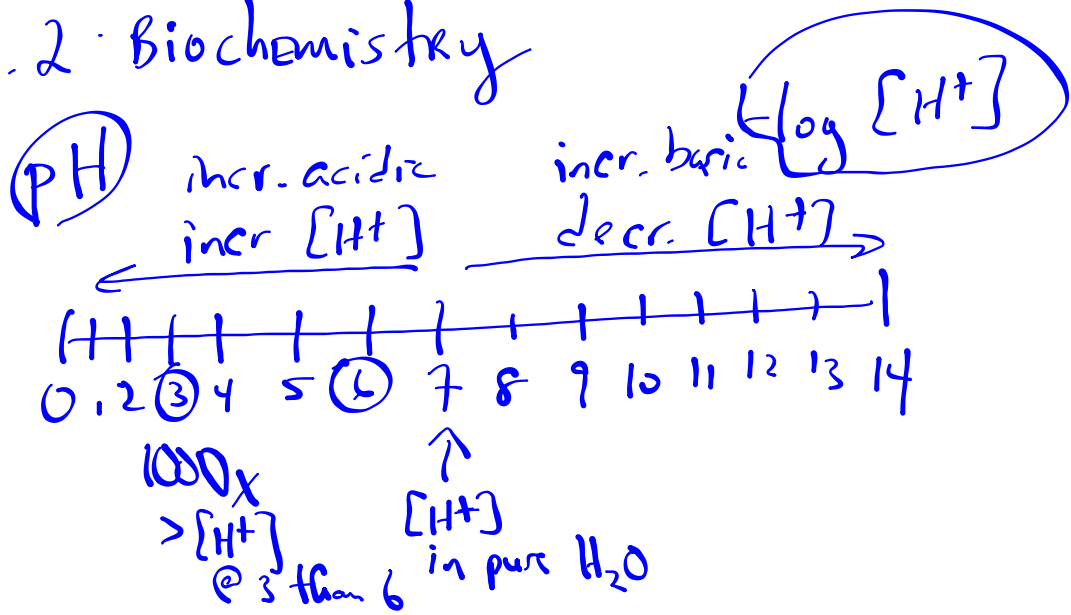 .2 Biochemistry
pH
-log [H+]
incr. acidic
incr [H+]
incr. basic
decr. [H+]
0 1 2 3 4 5 6 7 8 9 10 11 12 13 14
1000x
>[H+]
@ 3 than 6
[H+]
in pure H₂O